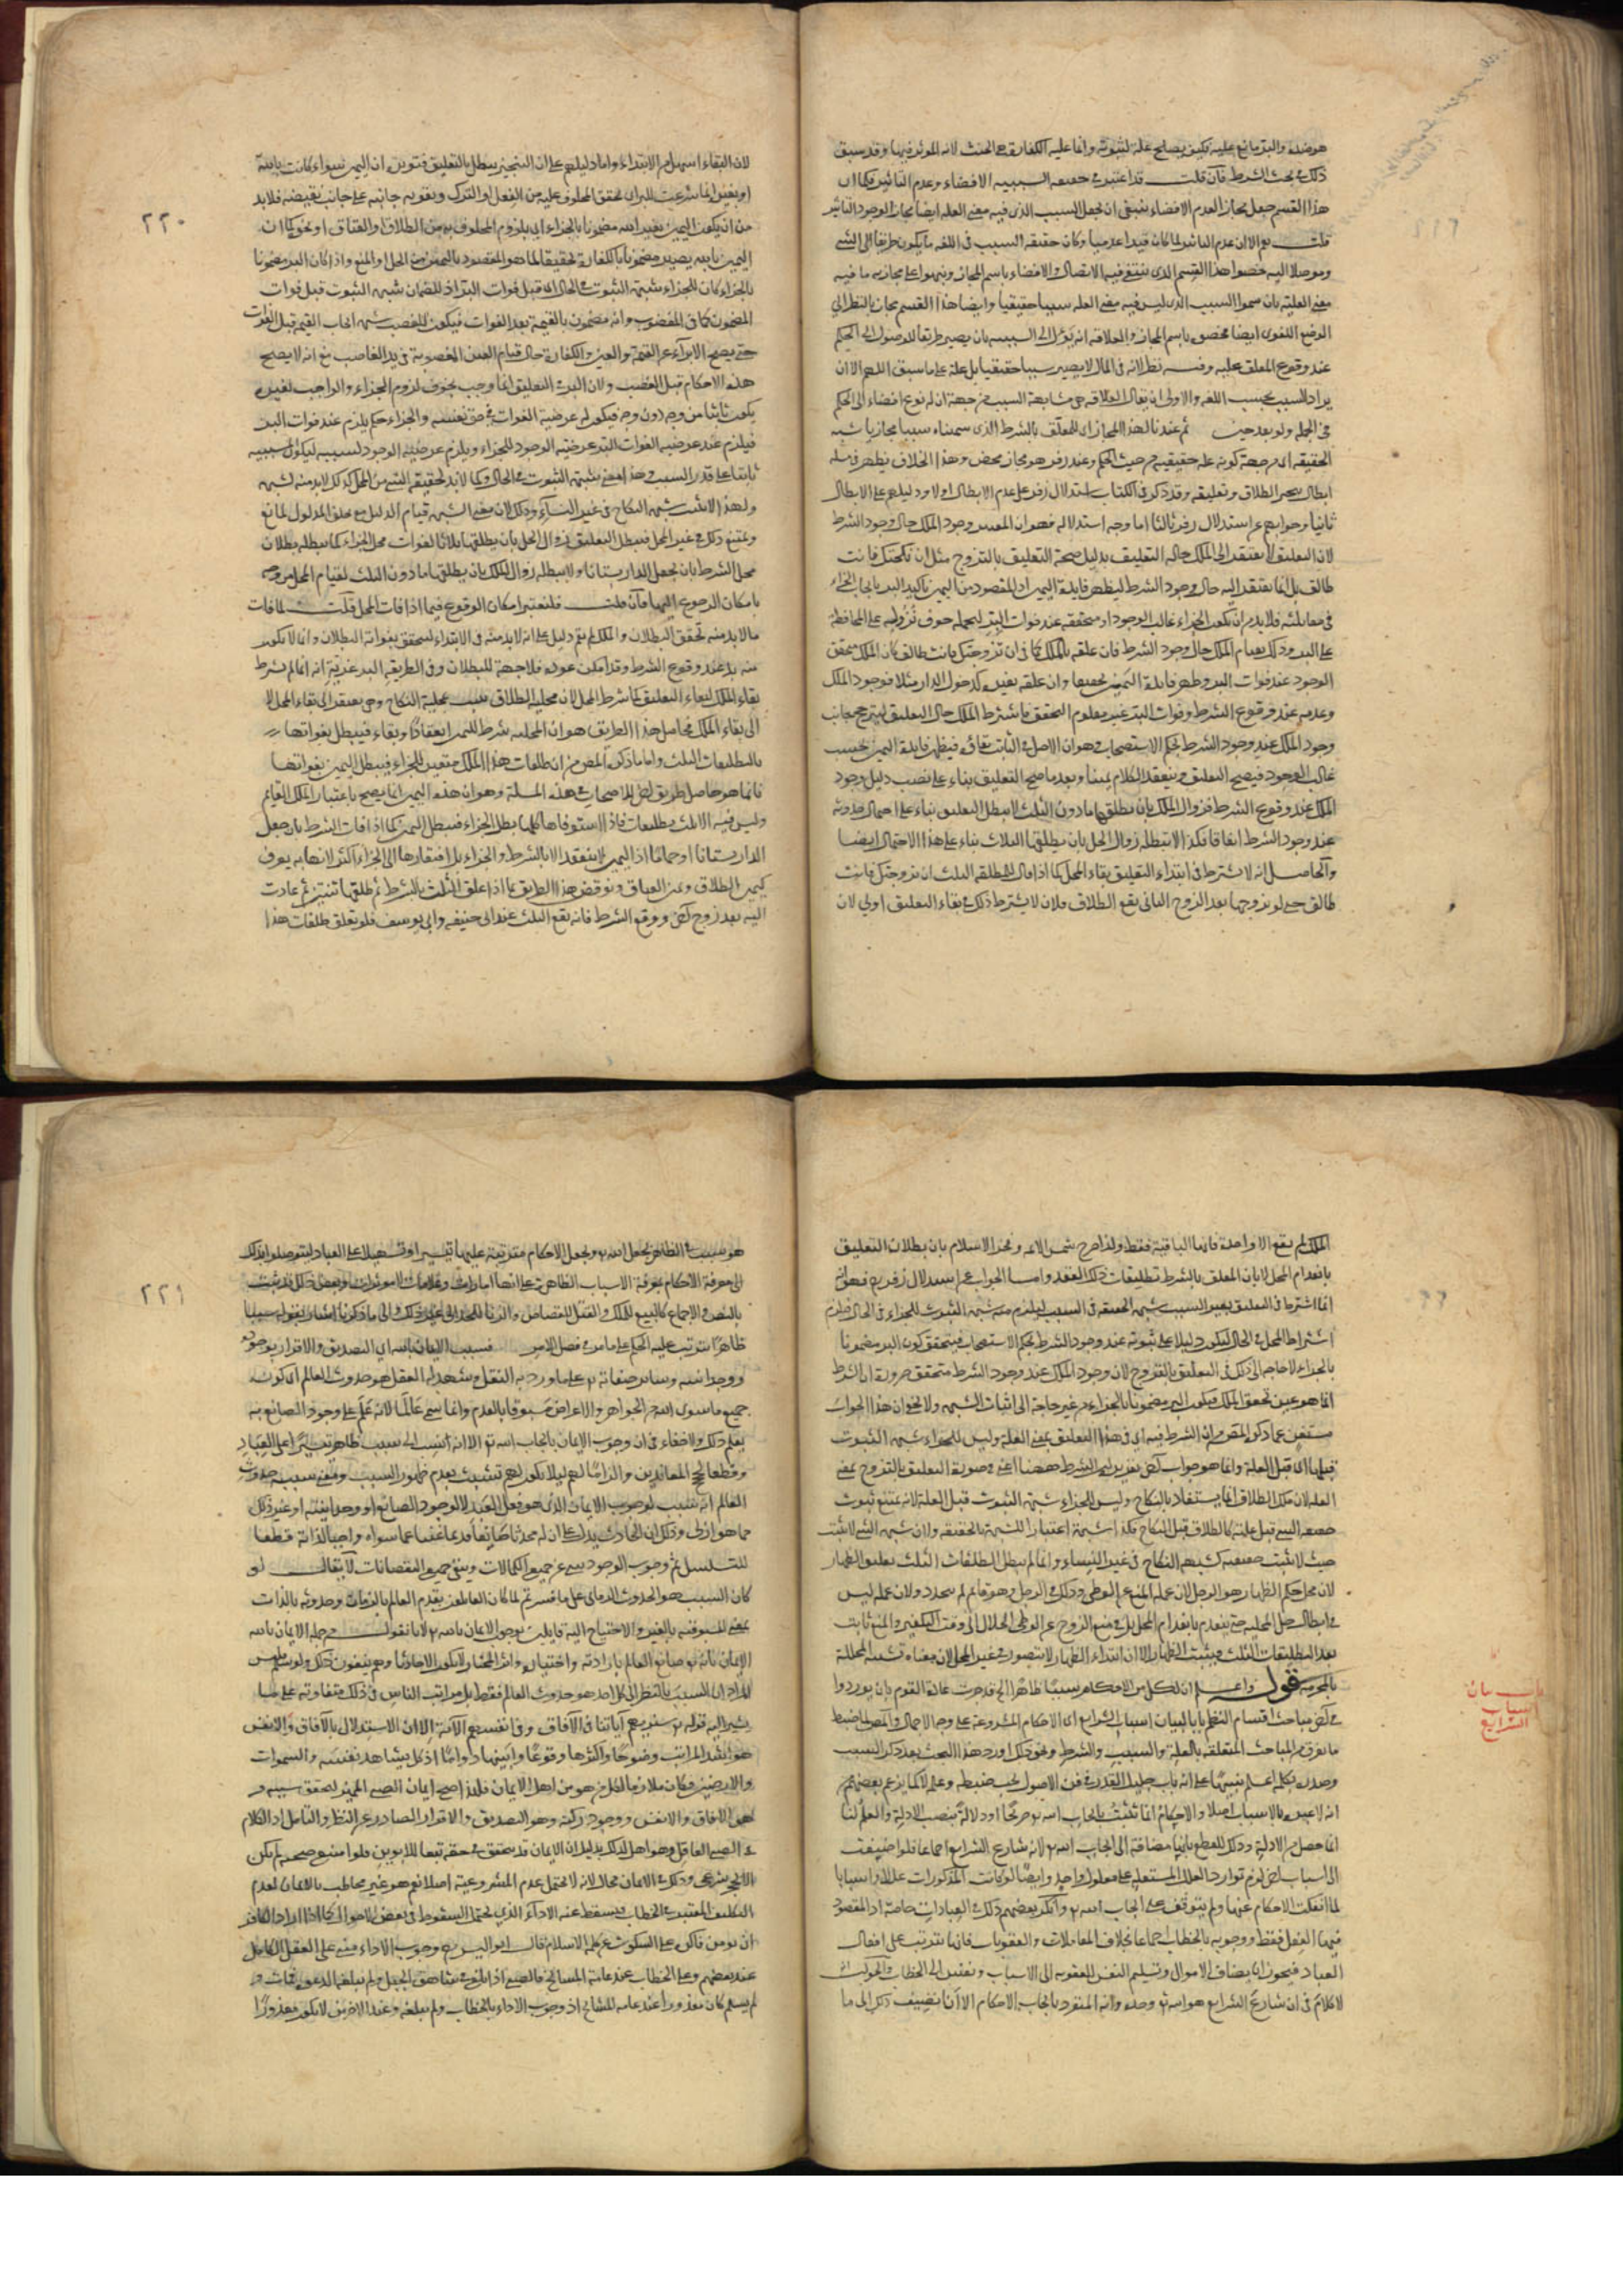 هو ضده والبر مانع عليه فكيف يصلح علة لثبوته وانما علية الكفارة هي الحنث لانه الموثر فيها وقد سبق
ذلك في بحث الشرط فان قلت قد اعتبر في حقيقة السببية الافضاء وعدم التاثير فكما ان
هذا القسم جعل مجازا لعدم الافضاء ينبغي ان يجعل السبب الذي فيه معنى العلة ايضا مجازا لوجود التاثير
قلت نعم الا ان عدم التاثير لما كان قيدا عدميا وكان حقيقة السبب في اللغة ما يكون طريقا الى الشي
وموصلا اليه خصوا هذا القسم الذي ينتفي فيه الاتصال والافضاء باسم المجاز ونبهوا على مجازية ما فيه
معنى العلية بان سموا السبب الذي ليس فيه معنى العلة سببا حقيقيا وايضا هذا القسم مجاز بالنظر الى
الوضع اللغوي ايضا فخص باسم المجاز والعلاقة انه يؤل الى السببية بان يصير طريقا للوصول الى الحكم
عند وقوع المعلق عليه وفيه نظر لانه في المال لا يصير سببا حقيقيا بل علة على ما سبق اللهم الا ان
يراد السبب بحسب اللغة والاولى ان يقال العلاقة هي مشابهة السبب من جهة ان له نوع افضاء الى الحكم
في الجملة ولو بعد حين ثم عندنا لهذا المجاز اي المعلق بالشرط الذي سميناه سببا مجازيا شبهة
الحقيقة اي من جهة كونه علة حقيقية من حيث الحكم وعند زفر هو مجاز محض وهذا الخلاف يظهر في مسئلة
ابطال تنجيز الطلاق وتعليقه وقد ذكر في الكتاب استدلال زفر على عدم الابطال اولا ودليلهم على الابطال
ثانيا وجوابهم عن استدلال زفر ثالثا اما وجه استدلاله فهو ان المعتبر وجود الملك حال وجود الشرط
لان التعليق لا يفتقر الى الملك حالة التعليق بدليل صحة التعليق بالتزوج مثل ان نكحتك فانت
طالق بل انما يفتقر اليه حال وجود الشرط ليظهر فايدة اليمين اذ المقصود من اليمين تاكيد البر بايجاب الجزاء
في مقابلته فلا بد من ان يكون الجزاء غالب الوجود او متحققه عند فوات البر ليحمله خوف نزوله على المحافظة
على البر وذلك بقيام الملك حال وجود الشرط فان علقه بالملك كما في ان تزوجتك فانت طالق كان الملك متحقق
الوجود عند فوات البر وظهر فايدة اليمين تحقيقا وان علقه بغيره كدخول الدار مثلا فوجود الملك
وعدمه عند وقوع الشرط وفوات البر غير معلوم التحقق فاشترط الملك حال التعليق ليترجح جانب
وجود الملك عند وجود الشرط بحكم الاستصحاب وهو ان الاصل في الثابت بقاؤه فيظهر فايدة اليمين بحسب
غالب الوجود فيصح التعليق وينعقد الكلام يمينا وبعد ما صح التعليق بناء على نصب دليل وجود
الملك عند وقوع الشرط فزوال الملك بان يطلقها ما دون الثلث لا يبطل التعليق بناء على احتمال حدوثه
عند وجود الشرط اتفاقا فكذا لا يبطله زوال الحل بان يطلقها الثلاث بناء على هذا الاحتمال ايضا
والحاصل انه لا يشترط في ابتداء التعليق بقاء المحل كما اذا قال للمطلقة الثلث ان تزوجتك فانت
طالق حتى لو تزوجها بعد الزوج الثاني يقع الطلاق فلان لا يشترط ذلك في بقاء التعليق اولى لان
٢٢٠
لان البقاء اسهل من الابتداء واما دليلهم على ان التنجيز يبطل بالتعليق فتوبن ان اليمين سواء كانت بالله
او بغيره انما شرعت للبر اي تحقق المحلوف عليه من الفعل او الترك وتقوية جانبه على جانب نقيضه فلا بد
من ان يكون اليمين بغير الله مضمونا بالجزاء اي بلزوم المحلوف به من الطلاق او العتاق او نحوه كما ان
اليمين بالله يصير مضمونا بالكفارة تحقيقا لما هو المقصود باليمين من الحمل او المنع واذا كان البر مضمونا
بالجزاء كان للجزاء شبهة الثبوت في الحال اي قبل فوات البر اذ للضمان شبهة الثبوت قبل فوات
المضمون كما في المغصوب وانه مضمون بالقيمة بعد الفوات فيكون للغصب شبهة ايجاب القيمة قبل الفوات
حتى يصح الابراء عن القيمة والعين والكفالة حال قيام العين المغصوبة في يد الغاصب مع انه لا يصح
هذه الاحكام قبل الغصب ولان البر في التعليق انما وجب بخوف لزوم الجزاء والواجب لغيره
يكون ثابتا من وجه دون وجه فيكون له عرضية الفوات في حق نفسه والجزاء حكم يلزم عند فوات البر
فيلزم عند عرضية الفوات للبر عرضية الوجود للجزاء ويلزم عرضية الوجود لسببه ليكون المسبب
ثابتا على قدر السبب وهذا معنى شبهة الثبوت في الحال وكما لا بد لحقيقة الشي من المحل كذلك لا بد منه لشبهته
ولهذا لا يثبت شبهة النكاح في غير النساء وذلك لان معنى الشبهة قيام الدليل مع تخلف المدلول لمانع
ويمتنع ذلك في غير المحل فيبطل التعليق زوال الحل بان يطلقها ثلاثا لفوات محل الجزاء كما يبطله بطلان
محل الشرط بان يجعل الدار بستانا ولا يبطله زوال الملك بان يطلقها ما دون الثلث لقيام المحل من وجه
بامكان الرجوع اليها فان قلت فلنعتبر امكان الوقوع فيما اذا فات المحل قلت لما فات
ما لا بد منه تحقق البطلان والملك لم يقم دليل على انه لا بد منه في الابتداء ليتحقق بفواته البطلان وانما لا يكون
منه بد عند وقوع الشرط وقد امكن عوده فلا جهة للبطلان وفي الطريقة البرغرية انه انما لم يشترط
بقاء الملك لبقاء التعليق كما شرط المحل لان محلية الطلاق تثبت بمحلية النكاح وهي يفتقر الى بقاء المحل لا
الى بقاء الملك فحاصل هذا الطريق هو ان المحلية شرط لليمين انعقادا وبقاء فيبطل بفواتها
بالتطليقات الثلث واما ما ذكره المص من ان طلقات هذا الملك متعين للجزاء فيبطل اليمين بفواتها
فانما هو حاصل طريق اخر للاصحاب في هذه المسئلة وهو ان هذه اليمين انما يصح باعتبار الملك القايم
وليس فيه الا ثلث تطليقات فاذا استوفاها كلها بطل الجزاء فيبطل اليمين كما اذا فات الشرط بان جعل
الدار بستانا او حماما اذ اليمين لا ينعقد الا بالشرط والجزاء بل افتقارها الى الجزاء اكثر لانها به يعرف
كيمين الطلاق ويمين العتاق ونوقض هذا الطريق بما اذا علق الثلث بالشرط ثم طلقها ثنتين ثم عادت
اليه بعد زوج اخر ووقع الشرط فانه يقع الثلث عند ابي حنيفة وابي يوسف فلو تعلق طلقات هذا
الملك لم يقع الا واحدة فانها الباقية فقط ولذا صرح شمس الائمة وفخر الاسلام بان بطلان التعليق
بانعدام المحل لا بان المعلق بالشرط تطليقات ذلك العقد واما الجواب عن استدلال زفر فهو انه
انما اشترط في التعليق بغير السبب شبهة الحقيقة في السبب ليلزم منه شبهة الثبوت للجزاء في الحال فيلزم
اشتراط المحل في الحال ليكون دليلا على ثبوته عند وجود الشرط بحكم الاستصحاب فيتحقق كون البر مضمونا
بالجزاء لا حاجة الى ذلك في التعليق بالتزوج لان وجود الملك عند وجود الشرط متحقق ضرورة ان الشرط
انما هو عين تحقق الملك فيكون البر مضمونا بالجزاء من غير حاجة الى اثبات الشبهة ولا يخفى ان هذا الجواب
مستغن عما ذكره المص من ان الشرط فيه اي في هذا التعليق بمعنى العلة وليس للجزاء شبهة الثبوت
قبلها اي قبل العلة وانما هو جواب اخر تقريره ان الشرط ههنا اعني في صورة التعليق بالتزوج بمعنى
العلة لان ملك الطلاق انما يستفاد بالنكاح وليس للجزاء شبهة الثبوت قبل العلة لانه يمتنع ثبوت
حقيقة الشي قبل علته كالطلاق قبل النكاح فكذا شبهته اعتبارا للشبهة بالحقيقة ولان شبهة الشي لا يثبت
حيث لا يثبت حقيقته كشبهة النكاح في غير النساء وانما لم يبطل التطليقات الثلث تعليق الظهار
لان محل حكم الظهار هو الرجل لان عمله المنع عن الوطي وذلك في الرجل وهو قائم لم يتجدد ولان عمله ليس
في ابطال حل المحلية حتى ينعدم بانعدام المحل بل في منع الزوج عن الوطي الحلال الى وقت التكفير والمنع ثابت
بعد التطليقات الثلث فيثبت الظهار الا ان ابتداء الظهار لا يتصور في غير المحل لان معناه تشبيه المحللة
بالمحرمة قوله واعلم ان لكل من الاحكام سببا ظاهرا الخ قد جرت عادة القوم بان يوردوا
في اخر مباحث اقسام النظم بابا لبيان اسباب الشرايع اي الاحكام المشروعة على وجه الاجمال والمص لما ضبط
ما تفرق من المباحث المتعلقة بالعلة والسبب والشرط ونحو ذلك اورد هذا البحث بعد ذكر السبب
وصدره بكلمة اعلم تنبيها على انه باب جليل القدر في فن الاصول يجب ضبطه وعلمه لا كما يزعم بعضهم من
انه لا عبرة بالاسباب اصلا والاحكام انما تثبت بايجاب الله صريحا او دلالة بنصب الادلة والعلم لنا
انما حصل من الادلة وذلك للقطع بانها مضافة الى ايجاب الله تع لانه شارع الشرايع اجماعا فلو اضيفت
الى اسباب اخر لزم توارد العلل المستقلة على معلول واحد وايضا لو كانت المذكورات عللا واسبابا
لما انفكت الاحكام عنها ولم يتوقف على ايجاب الله تع وانكر بعضهم ذلك في العبادات خاصة اذ المقصود
فيها الفعل فقط ووجوبه بالخطاب اجماعا بخلاف المعاملات والعقوبات فانها تترتب على افعال
العباد فيجوز ان يضاف الاموال وتسليم النفس للعقوبة الى الاسباب ونفس الى الخطاب والجواب انه
لا كلام في ان شارع الشرايع هو الله تع وحده وانه المنفرد بايجاب الاحكام الا انا نضيف ذلك الى ما
باب بيان
اسباب
الشرايع
٢٢١
هو سبب في الظاهر بجعل الله تع وبجعل الاحكام مترتبة عليها تيسيرا وتسهيلا على العباد ليتوصلوا بذلك
الى معرفة الاحكام بمعرفة الاسباب الظاهرة على انها امارات وعلامات لا موثرات وبعض ذلك قد يثبت
بالنص والاجماع كالبيع للملك والقتل للقصاص والزنا للحد الى غير ذلك والى ما ذكرنا اشار بقوله سببا
ظاهرا يترتب عليه الحكم على ما مر في فصل الامر فسبب الايمان بالله اي التصديق والاقرار بوجوده
ووحدانيته وسائر صفاته تع على ما ورد به النقل ويشهد له العقل هو حدوث العالم اي كونه
جميع ما سوى الله من الجواهر والاعراض مسبوقا بالعدم وانما سمي عالما لانه علم على وجود الصانع به
يعلم ذلك ولا خفاء في ان وجوب الايمان بايجاب الله تع الا انه نسب الى سبب ظاهر تيسيرا على العباد
وقطعا لحجج المعاندين والزاما لهم لئلا يكون لهم تشبث بعدم ظهور السبب ومعنى سببية حدوث
العالم انه سبب لوجوب الايمان الذي هو فعل العبد لا لوجود الصانع او وحدانيته او غير ذلك
مما هو ازلي وذلك ان الحادث يدل على ان له محدثا صانعا قديما غنيا عما سواه واجبا لذاته قطعا
للتسلسل ثم وجوب الوجود ينبئ عن جميع الكمالات وينفي جميع النقصانات لا يقال لو
كان السبب هو الحدوث الزماني على ما فسرتم لما كان القائلون بقدم العالم بالزمان وحدوثه بالذات
بمعنى المسبوقية بالغير والاحتياج اليه قايلين بوجوب الايمان بالله تع لانا نقول من جملة الايمان بالله
الايمان بانه تع صانع العالم بارادته واختياره واثر المختار لا يكون الا حادثا وهم ينفون ذلك ولو سلم فليس
المراد ان السبب بالنظر الى كل احد هو حدوث العالم فقط بل مراتب الناس في ذلك متفاوتة على ما
يشير اليه قوله تع سنريهم آياتنا في الآفاق وفي انفسهم الآية الا ان الاستدلال بالآفاق والانفس
هو اشد المراتب وضوحا واكثرها وقوعا وابينها دواما اذ كل يشاهد نفسه والسموات
والارضين فكان ملازما لكل من هو من اهل الايمان فلذا صح ايمان الصبي المميز لتحقق سببه وهو
الآفاق والانفس ووجود ركنه وهو التصديق والاقرار الصادر عن النظر والتامل اذ الكلام
في الصبي العاقل وهو اهل لذلك بدليل ان الايمان قد يتحقق في حقه تبعا للابوين فلو امتنع صحته لم يكن
الا بحجر شرعي وذلك في الايمان محال لانه لا يحتمل عدم المشروعية اصلا نعم هو غير مخاطب بالايمان لعدم
التكليف المعتبر في الخطاب فيسقط عنه الاداء الذي يحتمل السقوط في بعض الاحوال كما اذا اراد الكافر
ان يومن فاكره على السكوت عن كلمة الاسلام قال ابو اليسر وجوب الاداء مبني على العقل الكامل
عند بعضهم وعلى الخطاب عند عامة المشايخ فالصبي اذا بلغ في شاهق الجبل ولم تبلغه الدعوة فمات و
لم يسلم كان معذورا عند عامة المشايخ اذ وجوب الاداء بالخطاب ولم يبلغه وعند الاخرين لا يكون معذورا